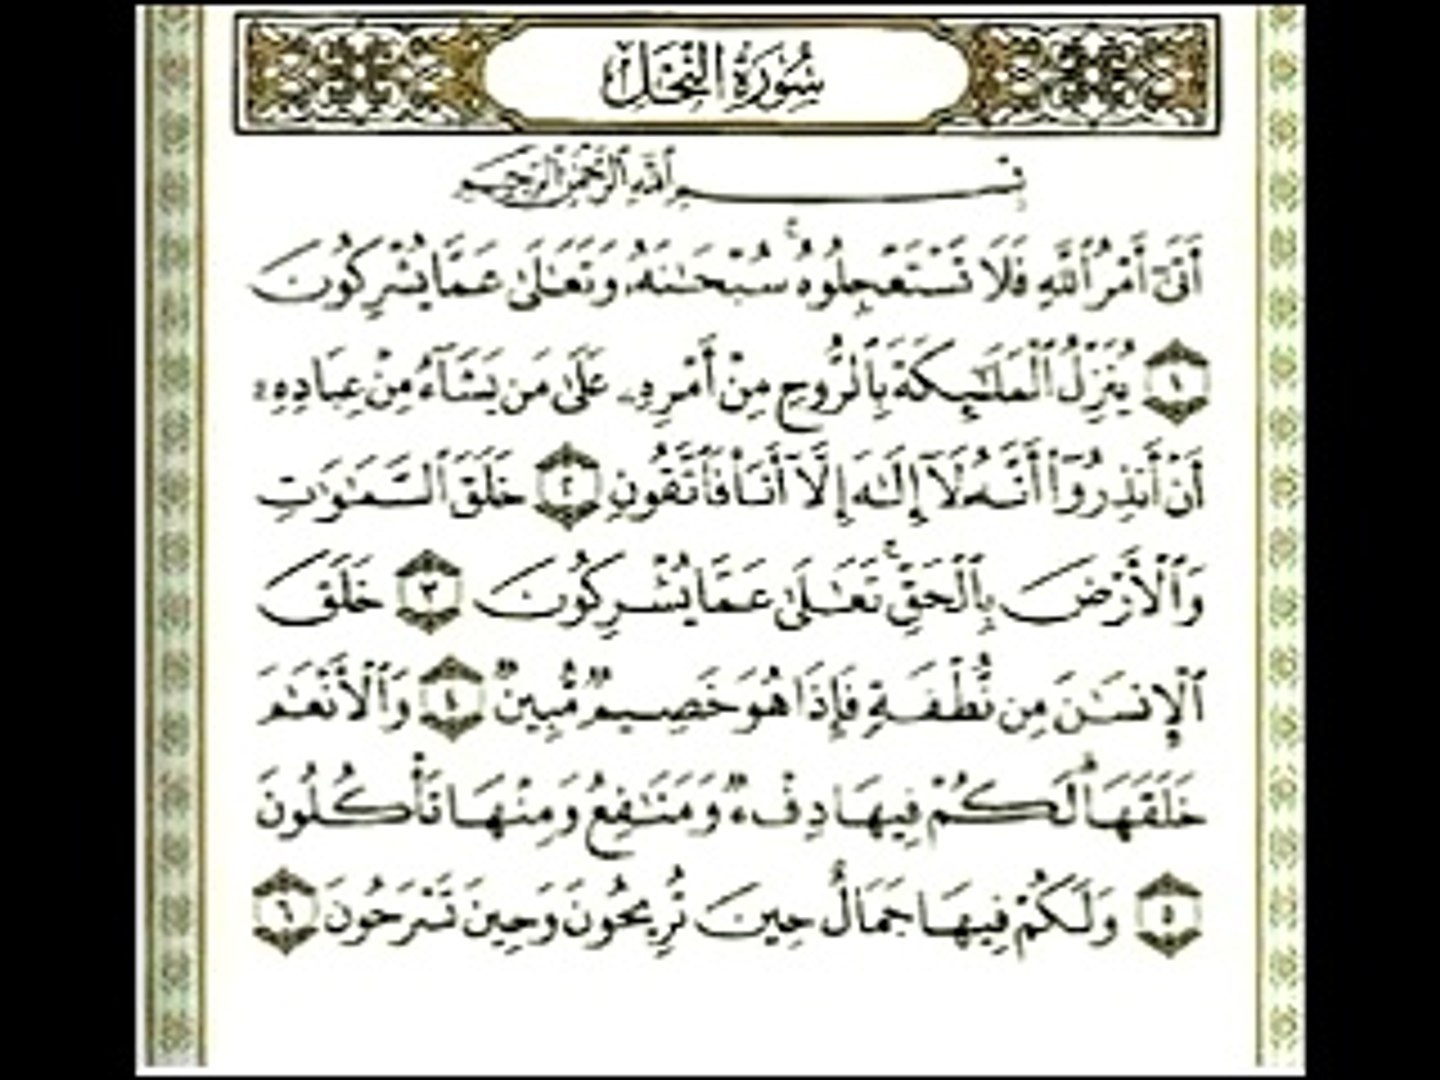 سُورَةُ النَّحْلِ
بِسْمِ ٱللَّهِ ٱلرَّحْمَٰنِ ٱلرَّحِيمِ
أَتَىٰٓ أَمْرُ ٱللَّهِ فَلَا تَسْتَعْجِلُوهُ ۚ سُبْحَٰنَهُۥ وَتَعَٰلَىٰ عَمَّا يُشْرِكُونَ
١ يُنَزِّلُ ٱلْمَلَٰٓئِكَةَ بِٱلرُّوحِ مِنْ أَمْرِهِۦ عَلَىٰ مَن يَشَآءُ مِنْ عِبَادِهِۦٓ
أَنْ أَنذِرُوٓا۟ أَنَّهُۥ لَآ إِلَٰهَ إِلَّآ أَنَا۠ فَٱتَّقُونِ ٢ خَلَقَ ٱلسَّمَٰوَٰتِ
وَٱلْأَرْضَ بِٱلْحَقِّ ۚ تَعَٰلَىٰ عَمَّا يُشْرِكُونَ ٣ خَلَقَ
ٱلْإِنسَٰنَ مِن نُّطْفَةٍ فَإِذَا هُوَ خَصِيمٌ مُّبِينٌ ٤ وَٱلْأَنْعَٰمَ
خَلَقَهَا ۗ لَكُمْ فِيهَا دِفْءٌ وَمَنَٰفِعُ وَمِنْهَا تَأْكُلُونَ
٥ وَلَكُمْ فِيهَا جَمَالٌ حِينَ تُرِيحُونَ وَحِينَ تَسْرَحُونَ ٦